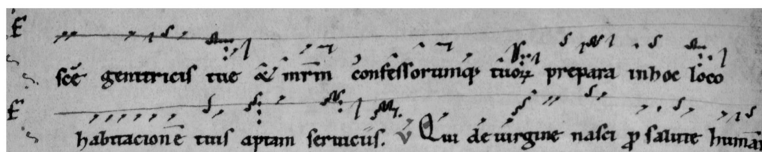 scē genitricis tue & mr̄m confessorumq; tuoꝝ prepara in hoc loco
habitacionē tuis aptam seruiciis. V Qui de uirgine nasci ꝓ salute humān